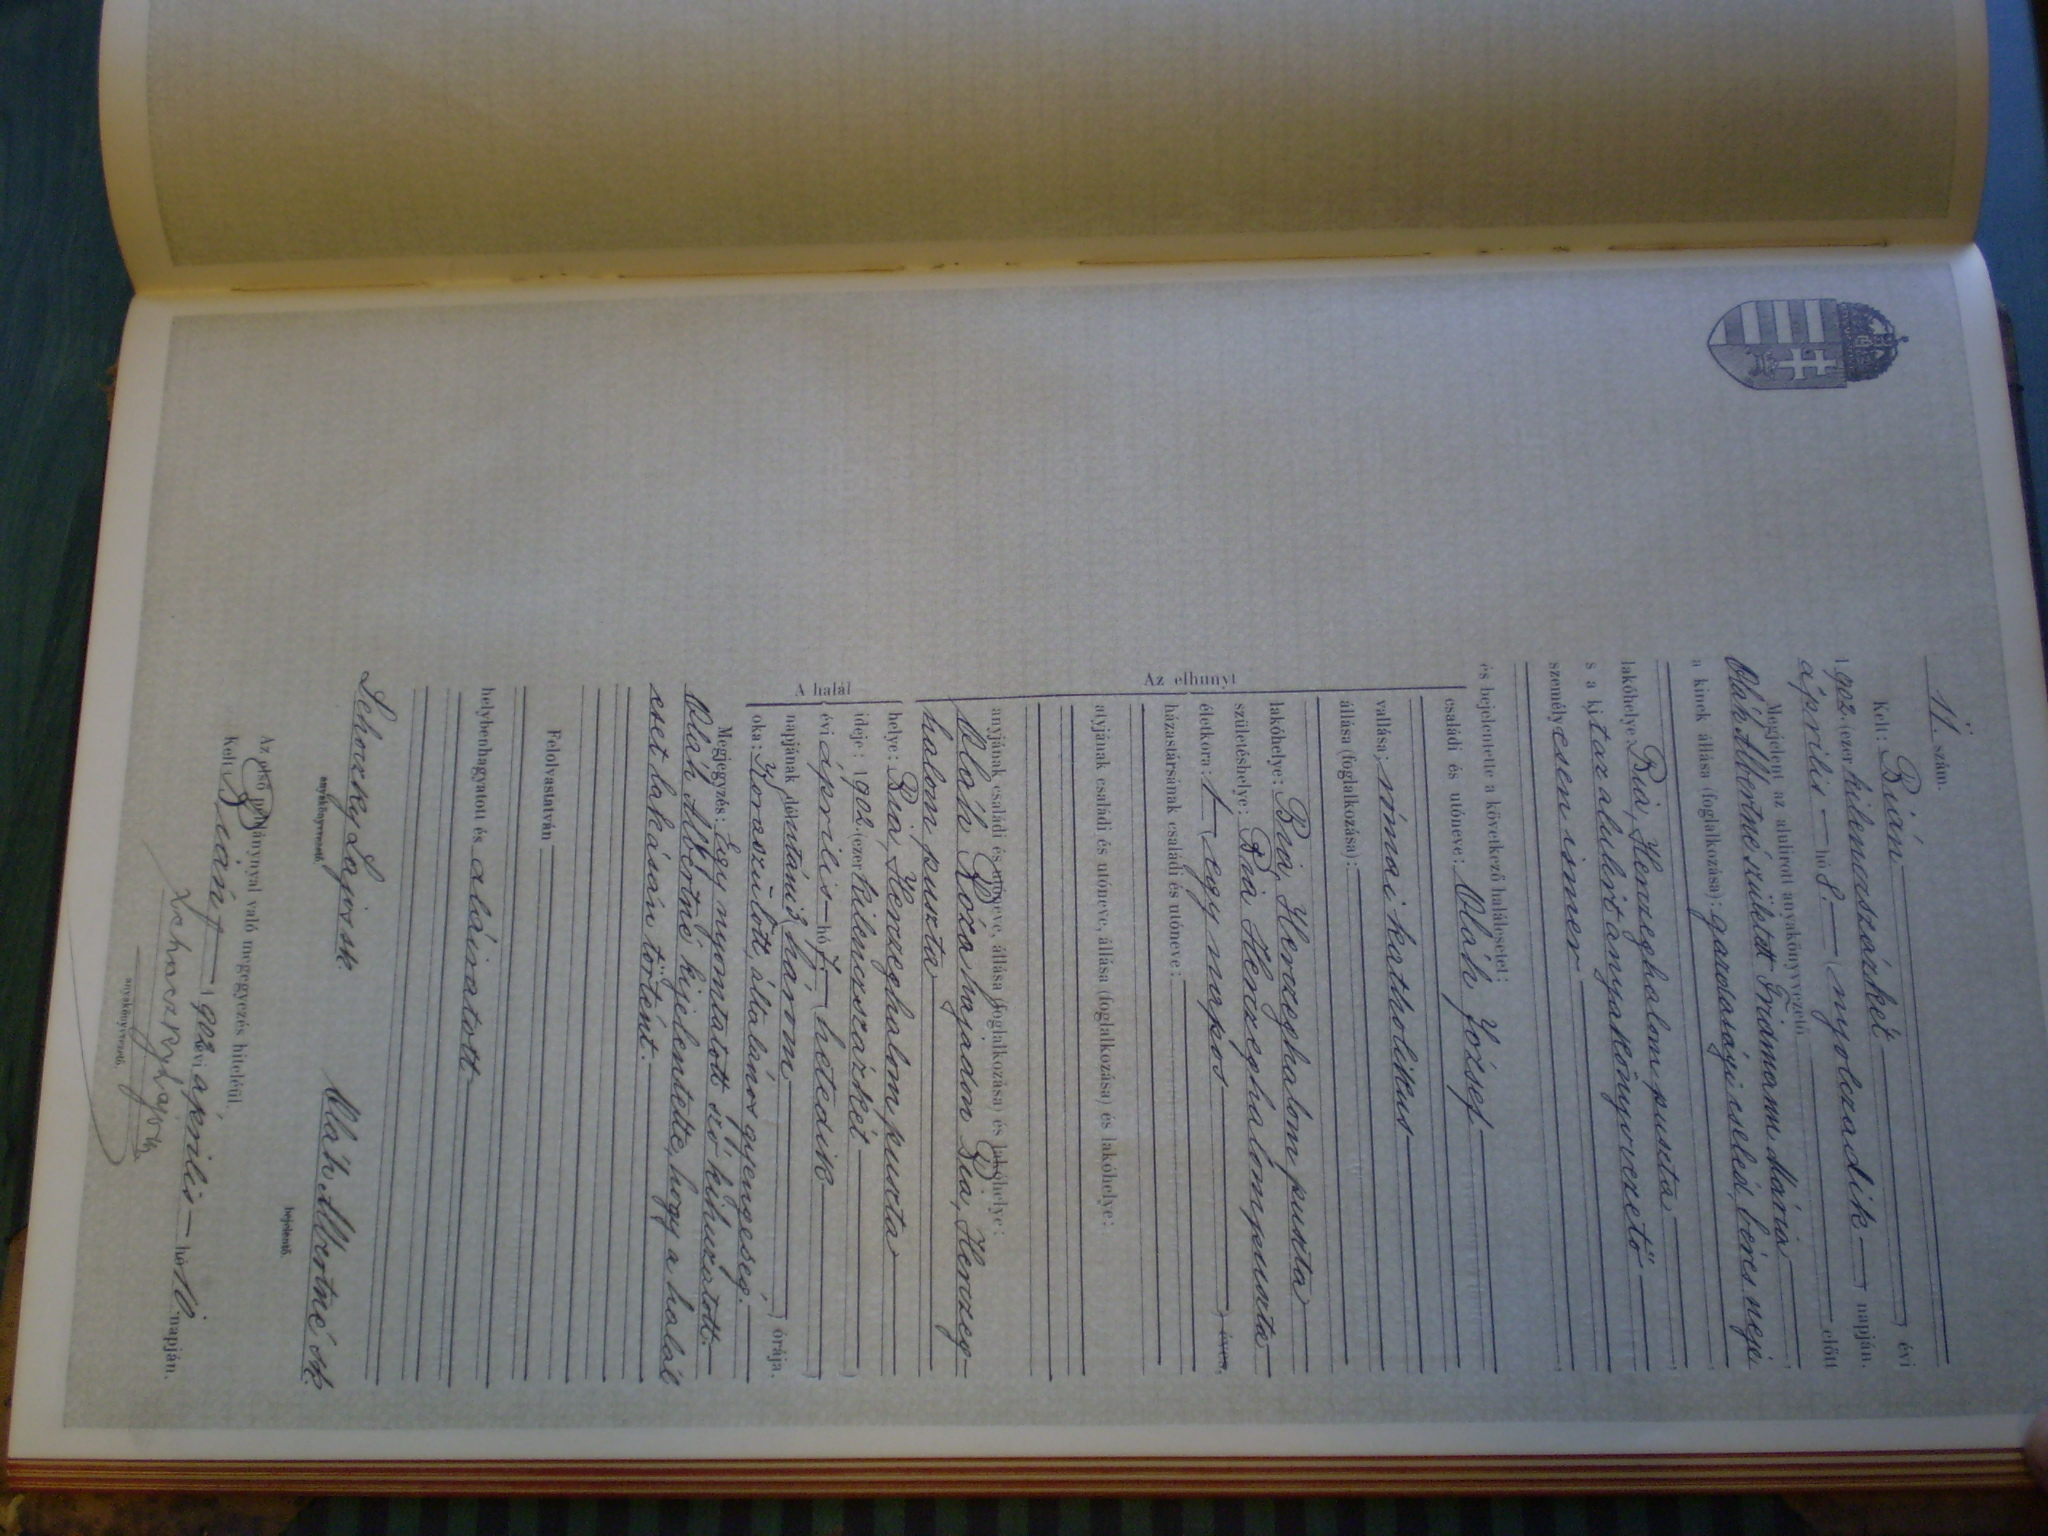 11. szám.
Kelt: Bián évi
1902. (ezer kilencszázkét
április hó 8. (nyolczadik) napján.
Megjelent az alulirott anyakönyvvezető előtt
Oláh Albertné született Fridmann Mária
a kinek állása (foglalkozása): gazdasági cseléd, béres neje
lakóhelye Bia, Herczeghalom puszta
s a kit az alulirt anyakönyvvezető
személyesen ismer
és bejelentette a következő halálesetet:
Az elhunyt
családi és utóneve: Oláh József
vallása: római katholikus
állása (foglalkozása):
lakóhelye: Bia, Herczeghalom puszta
születéshelye: Bia Herczeghalom puszta
életkora: 1 (egy napos) éves,
házastársának családi és utóneve:
atyjának családi és utóneve, állása (foglalkozása) és lakóhelye:
anyjának családi és utóneve, állása (foglalkozása) és lakóhelye:
Oláh Róza hajadon Bia, Herczeg-
halom puszta
A halál
helye: Bia, Herczeghalom puszta
ideje: 1902. (ezer kilenczszázkét)
évi április hó 7 (hetedik)
napjának délutáni 3 (három) órája.
oka: Koraszülött, általános gyengeség.
Megjegyzés: Egy nyomtatott szó kihuzatott.
Oláh Albertné kijelentette, hogy a halál
eset lakásán történt.
Felolvastatván
helybenhagyatott és aláiratott
Oláh Albertné sk.
anyakönyvvezető.
bejelentő.
Az első példánynyal való megegyezés hiteléül,
Kelt Bián, 1902 évi április hó 10. napján.
anyakönyvvezető.